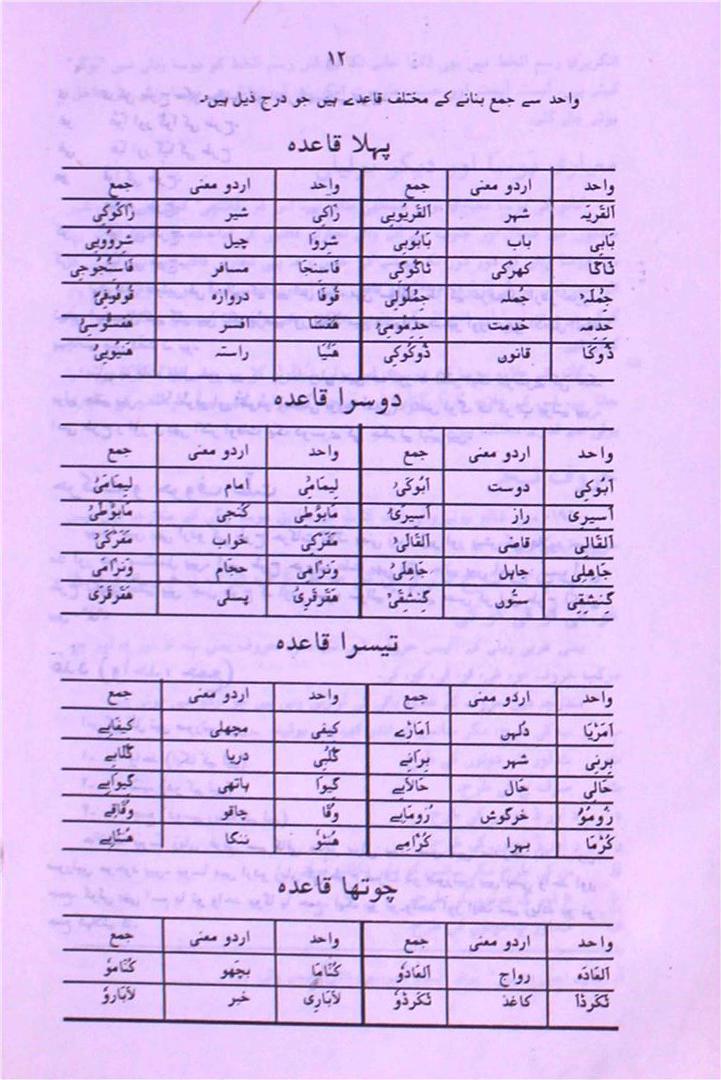 ۱۲
واحد سے جمع بنانے کے مختلف قاعدے ہیں جو درج ذیل ہیں۔
پہلا قاعدہ
واحد اردو معنی جمع واحد اردو معنی جمع
اَلقَریَہ شہر اَلقَریُویِی زَاکِی شیر زَاکُوکِی
بَابِی باب بَابُوبِی شِروَا چیل شِرووِیی
تَاگَا کھڑکی تَاگُوگِی فَاسِنجَا مسافر فَاسِنجُوجِی
جُملہ جملہ جُملُولِی قُوفَا دروازہ قُوفُوفِی
خِدمَہ خدمت خِدمُومِی ھَفسَا افسر ھَفسُوسِی
دُوکَا قانوں دُوکُوکِی ھَنیَا راستہ ھَنیُویِی
دوسرا قاعدہ
واحد اردو معنی جمع واحد اردو معنی جمع
اَبُوکِی دوست اَبُوکَی لِیمَامِی امام لِیمَامَی
اَسِیرِی راز اَسِیرَی مَابُوطِی کنجی مَابُوطَی
اَلقَالِی قاضی اَلقَالَی مَفَرکِی خواب مَفَرکَی
جَاھِلِی جاہل جَاھِلَی وَنزَامِی حجام وَنزَامَی
گِنشِقِی ستوں گِنشِقَی ھَقَرقَرِی پسلی ھَقَرقَرَی
تیسرا قاعدہ
واحد اردو معنی جمع واحد اردو معنی جمع
اَمَریَا دلہن اَمَارے کیفی مچھلی کیفَایے
بِرنِی شہر بِرَانے گُلبِی دریا گُلَابے
حَالِی حال حَالَایے گیوَا ہاتھی گیوَایے
زُومُو خرگوش زُومَایے وُقَا چاقو وُقَاقے
کُرمَا بہرا کُرَامے ھُنتُو ننگا ھُنتَایے
چوتھا قاعدہ
واحد اردو معنی جمع واحد اردو معنی جمع
اَلعَادَہ رواج اَلعَادُو کُنَامَا بچھو کُنَامُو
تَکَردَا کاغذ تَکَردُو لَابَارِی خبر لَابَارُو